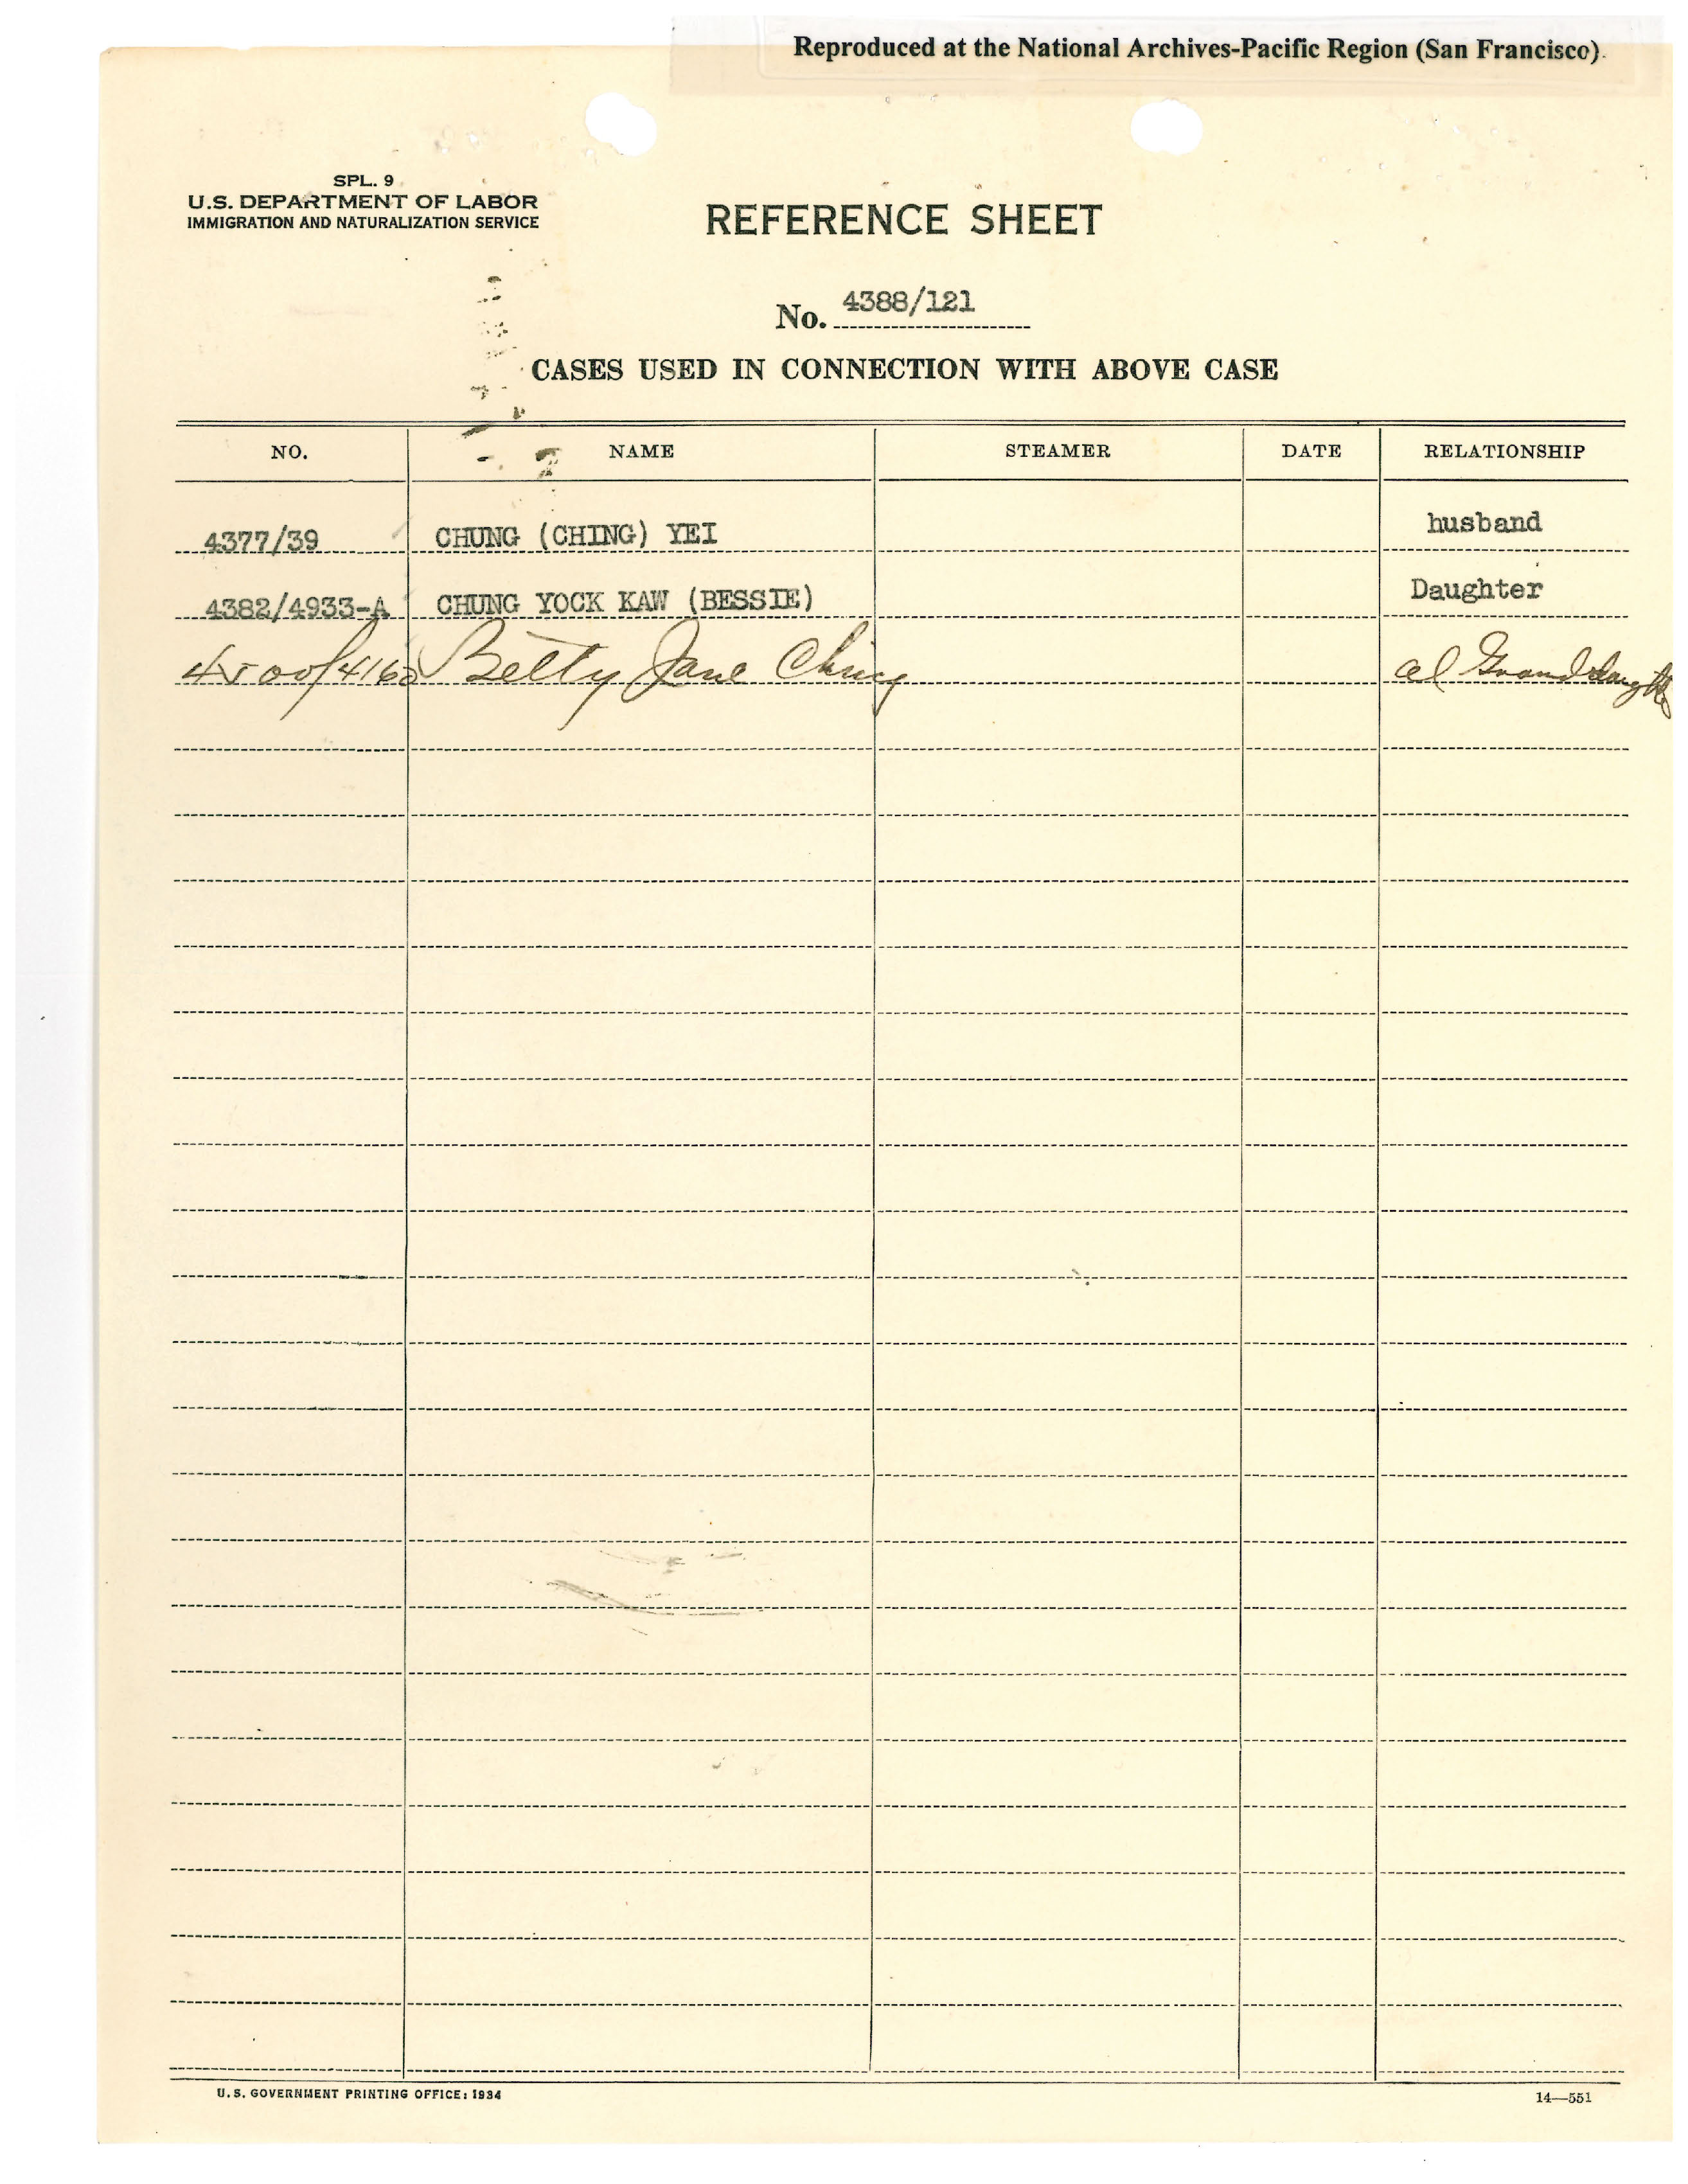 Reproduced at the National Archives-Pacific Region (San Francisco).
SPL. 9
U.S. DEPARTMENT OF LABOR
IMMIGRATION AND NATURALIZATION SERVICE
REFERENCE SHEET
No. 4388/121
CASES USED IN CONNECTION WITH ABOVE CASE
NO. NAME STEAMER DATE RELATIONSHIP
4377/39 CHUNG (CHING) YEI husband
4382/4933-A CHUNG YOCK KAW (BESSIE) Daughter
Betty Jane Ching al Granddaughter
U.S. GOVERNMENT PRINTING OFFICE: 1934
14—551